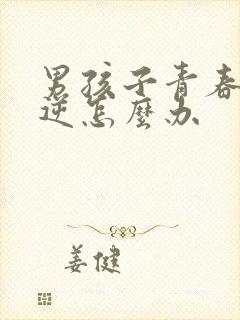 男孩子青春
逆怎麼办
姜健